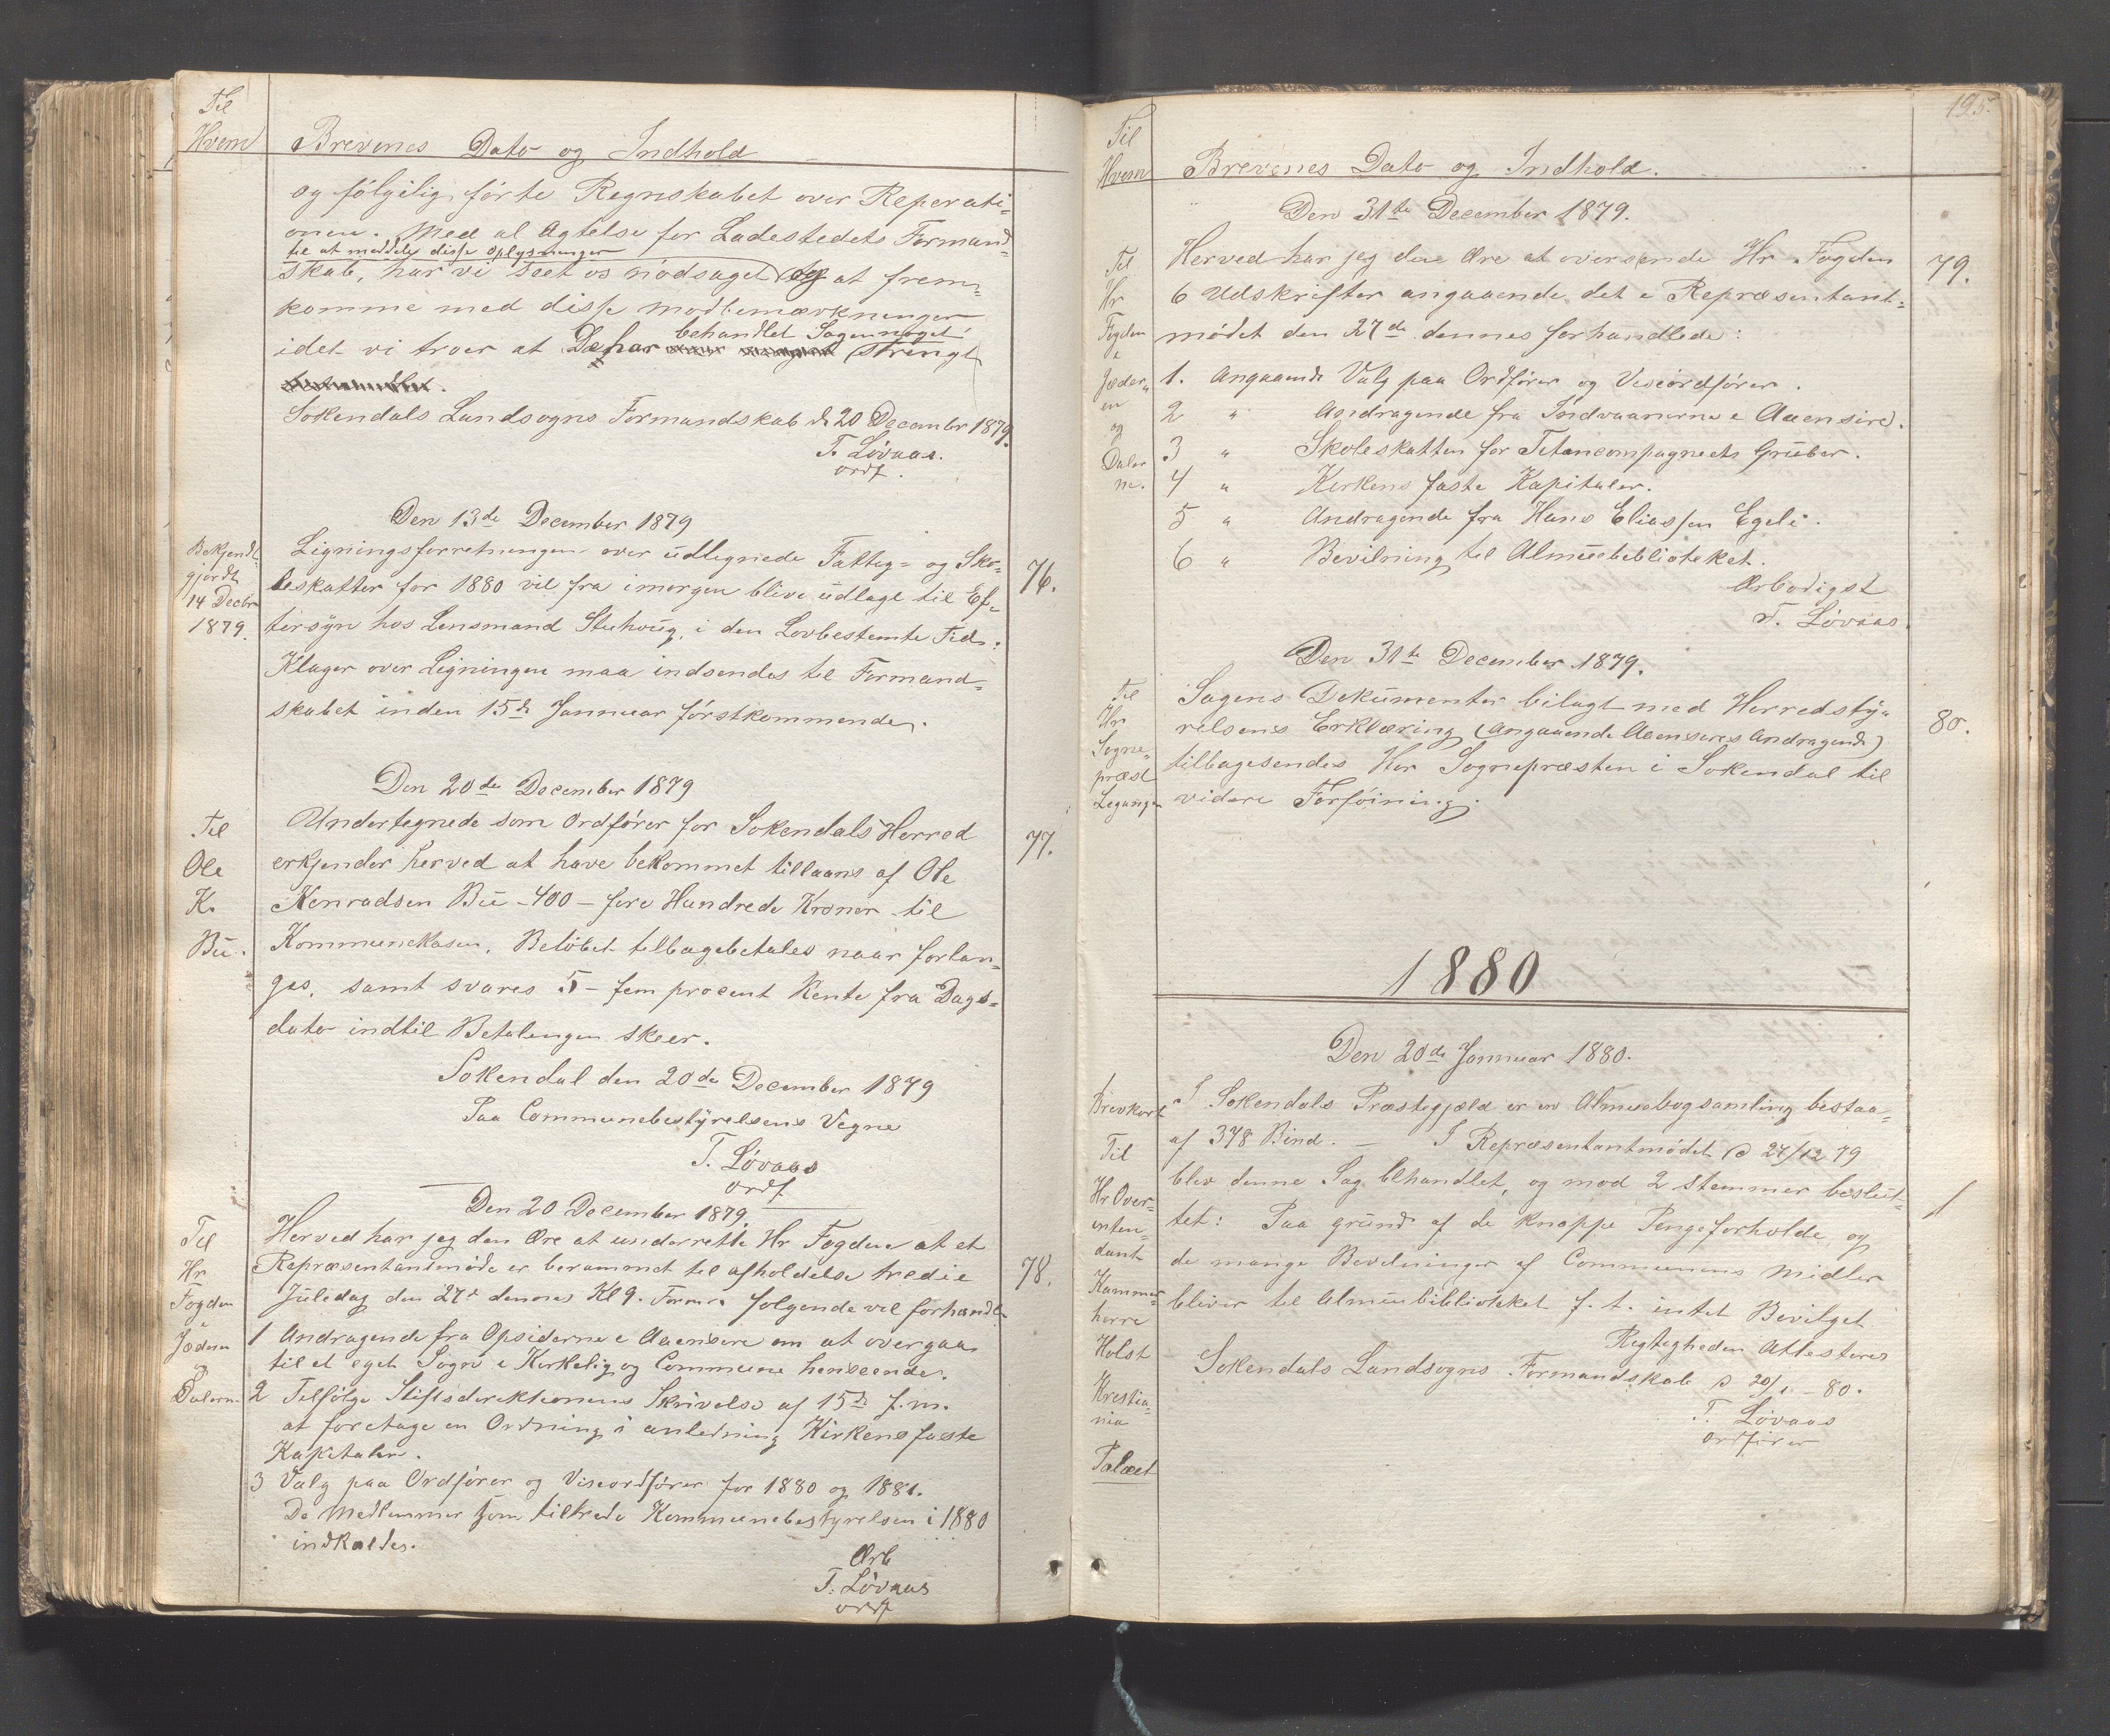 Til
Hvem
Brevenes Dato og Indhold
og følgelig førte Regnskabet over Reperati-
onen. Med al Agtelse for Ladestedets Formand-
til at meddele disse Oplysninger
skab, har vi seet os nødsaget og at frem-
komme med disse modbemærkninger
behandlet Sagen noget
idet vi troer at De har strengt
Sokendals Landsogns Formandskab d 20 December 1879.
T. Løvaas.
ordf.
Den 13de December 1879
Bekjendt-
gjordt
14 Decbr
1879.
Ligningsforretningen over udlignede Fattig- og Sko-
leskatter for 1880 vil fra imorgen blive udlagt til Ef-
tersyn hos Lensmand Stuhoug, i den Lovbestemte Tid.
Klager over Ligningen maa indsendes til Formand-
skabet inden 15de Januar førstkommende.
76.
Den 20de December 1879
Til
Ole
K.
Bu.
Undertegnede som Ordfører for Sokendals Herred
erkjender herved at have bekommet tillaans af Ole
Konradsen Bu -400- fire Hundrede Kroner til
Kommunekasen. Beløbet tilbagebetales naar forlan-
ges, samt svares 5 - fem procent Rente fra Dags-
dato indtil Betalingen skeer.
77.
Sokendal den 20de December 1879
Paa Communebestyrelsens Vegne
T. Løvaas
ordf
Den 20 December 1879
Til
Hr
Fogden
i
Jædern
og
Dalerne
Herved har jeg den Ære at underrette Hr Fogden at et
Repræsentantmøde er berammet til afholdelse tredie
Juledag den 27de dennes Kl 9. Form: følgende vil forhandl.
1 Andragende fra Opsiderne i Aaensire om at overgaa
til et eget Sogn i Kirkelig og Commune henseende.
2 Tilfølge Stiftsdirektionens Skrivelse af 15de f.m.
at foretage en Ordning i anledning Kirkens faste
Kapitaler.
3 Valg paa Ordfører og Viseordfører for 1880 og 1881.
De Medlemmer som tiltræde Kommunebestyrelsen i 1880
indkaldes.
78.
Ærb
T. Løvaas
ordf
195.
Til
Hvem
Brevenes Dato og Indhold.
Den 31te December 1879.
Til
Hr
Fogden
i
Jæder-
en
og
Daler
ne.
Herved har jeg den Ære at oversende Hr. Fogden
6 Udskrifter angaaende det i Repræsentant-
mødet den 27de dennes forhandlede:
79.
1. Angaaende Valg paa Ordfører og Viseordfører.
2 " Andragende fra Indvaanerne i Aaensire.
3 " Skoleskatten for Titancompagniets Gruber.
4 " Kirkens faste Kapitaler.
5 " Andragende fra Hans Eliassen Egeli.
6 " Bevilning til Almuebiblioteket.
Ærbødigst
T. Løvaas.
Den 31te December 1879.
Til
Hr
Sogne-
præst
Legangen
Sagens Dokumenter bilagt med Herredsty-
relsens Erklæring (angaaende Aaensires Andragende)
tilbagesendes Her Sognepræsten i Sokendal til
videre Forføining.
80.
1880
Den 20de Januar 1880.
Brevkort
Til
Hr Over-
inten-
dant
Kammer-
herre
Holst
Kristia-
nia
Palæet
I Sokendals Præstegjæld er en Almuebogsamling bestaa-
af 378 Bind. — I Repræsentantmødet d 27/12 79
blev denne Sag behandlet, og mod 2 stemmer beslut-
tet: Paa grund af de knappe Pengeforholde og
de mange Bevilninger af Communens Midler
bliver til Almuebiblioteket f. t. intet Bevilget
1
Rigtigheden Attesteres
Sokendals Landsogns Formandskab d 20/1 - 80.
T. Løvaas
ordfører